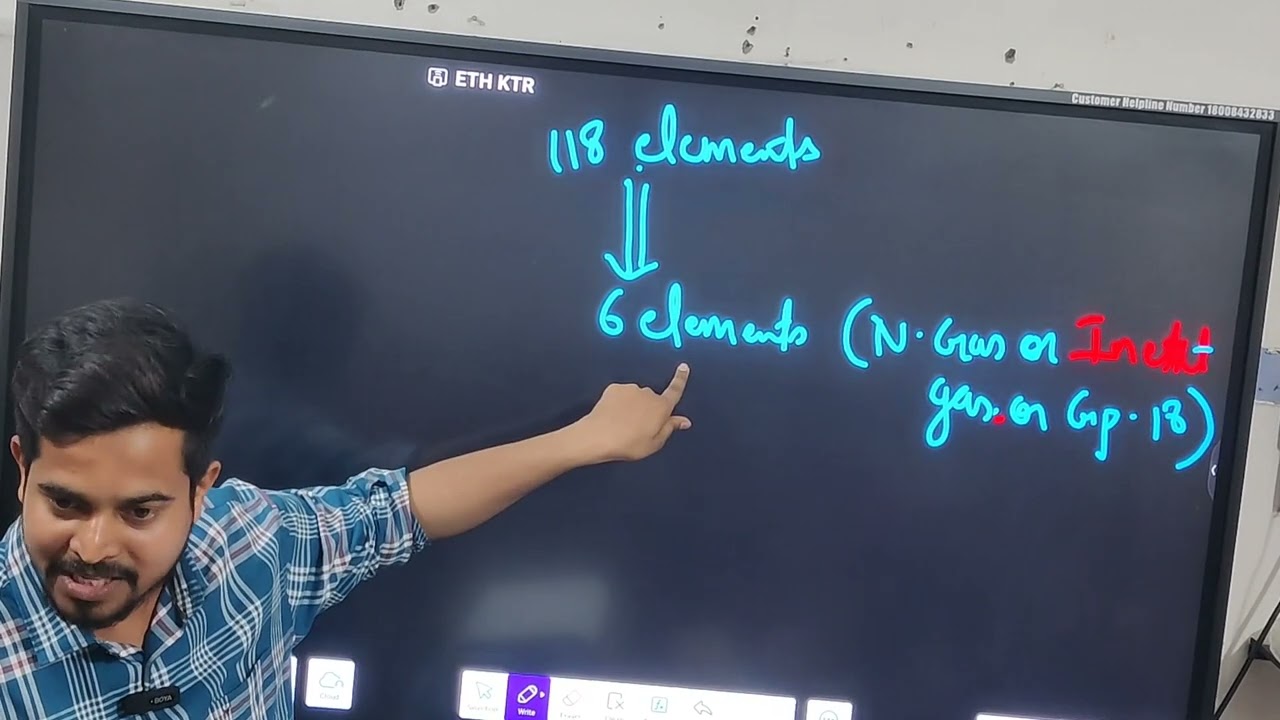 ETH KTR
Customer Helpline Number 18008432833
118 elements
6 elements (N. Gas or Inert
gas. or Gp. 18)
BOYA
Cloud
Write